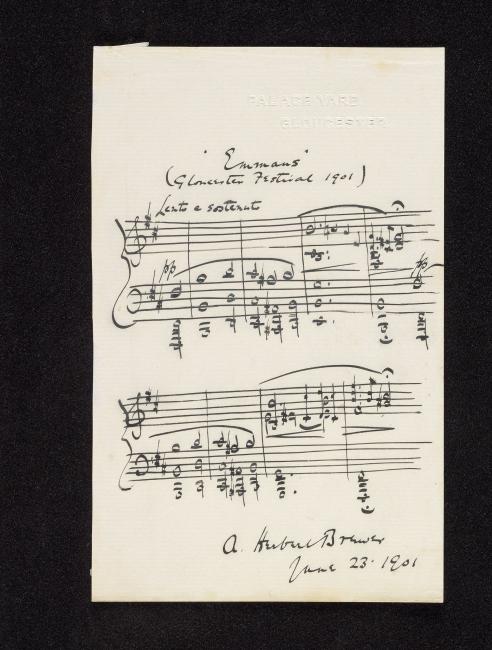 PALACE YARD
GLOUCESTER
"Emmaus"
(Gloucester Festival 1901)
Lento e sostenuto
pp
pp
A. Herbert Brewer
June 23. 1901